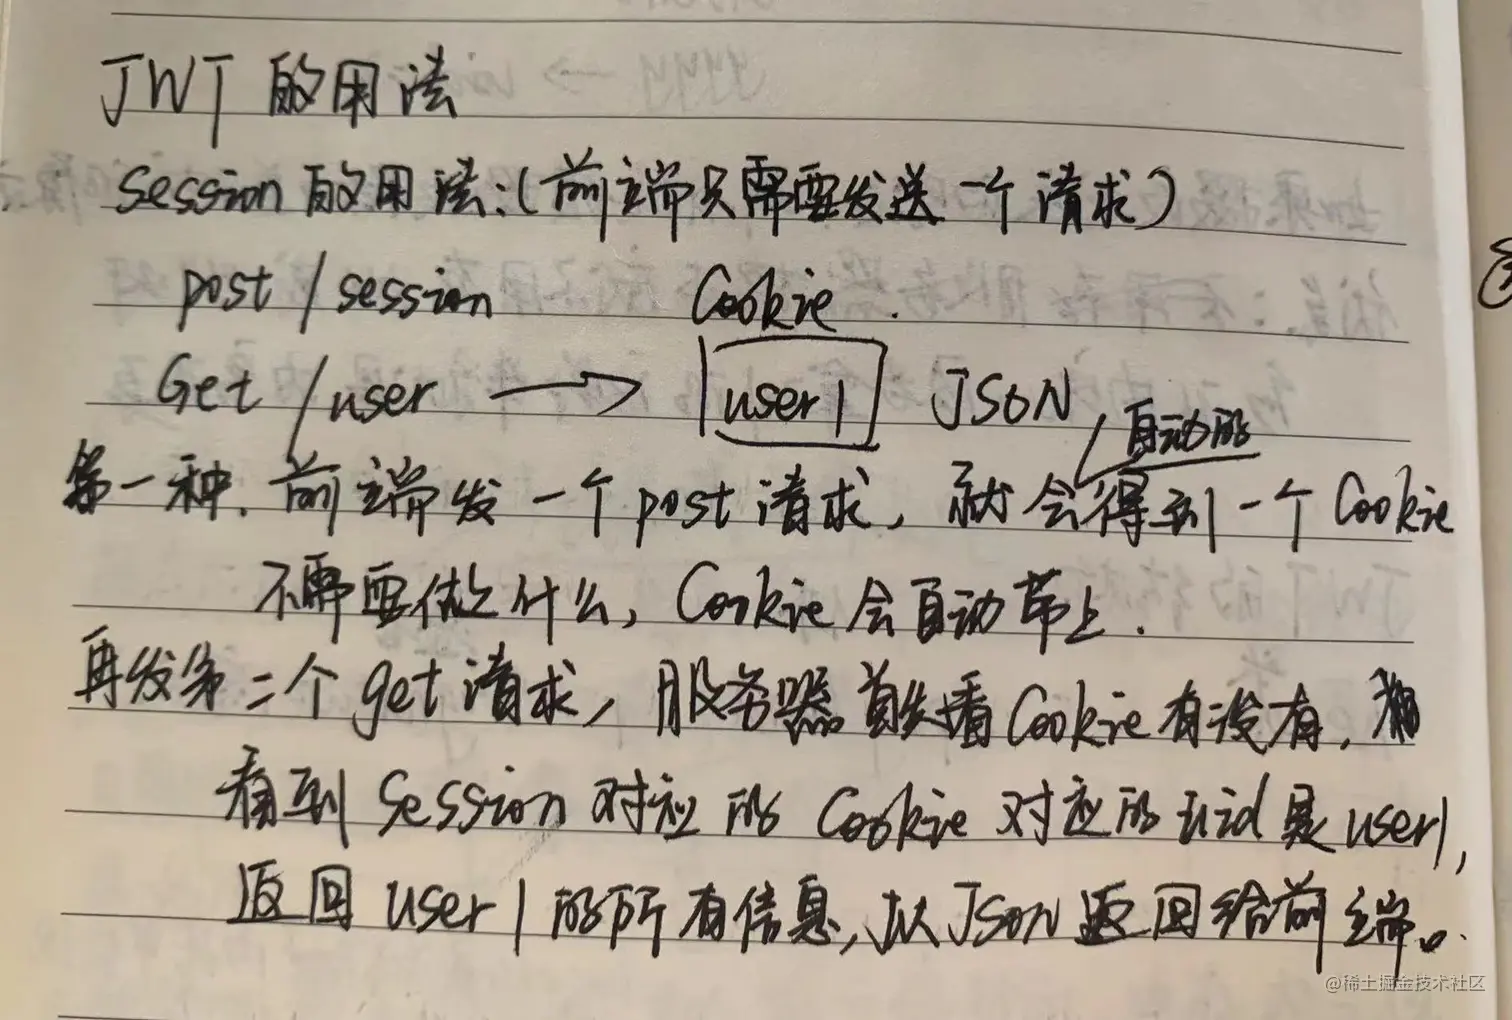 JWT 的用法
Session 的用法:(前端只需要发送一个请求)
post /session Cookie.
Get /user → user1 JSON
自动的
第一种. 前端发一个post请求, 就会得到一个Cookie
不需要做什么, Cookie会自动带上.
再发第二个get请求, 服务器首先看Cookie有没有,
看到Session对应的Cookie对应的uid是user1,
返回user1的所有信息, 以JSON返回给前端。
@稀土掘金技术社区